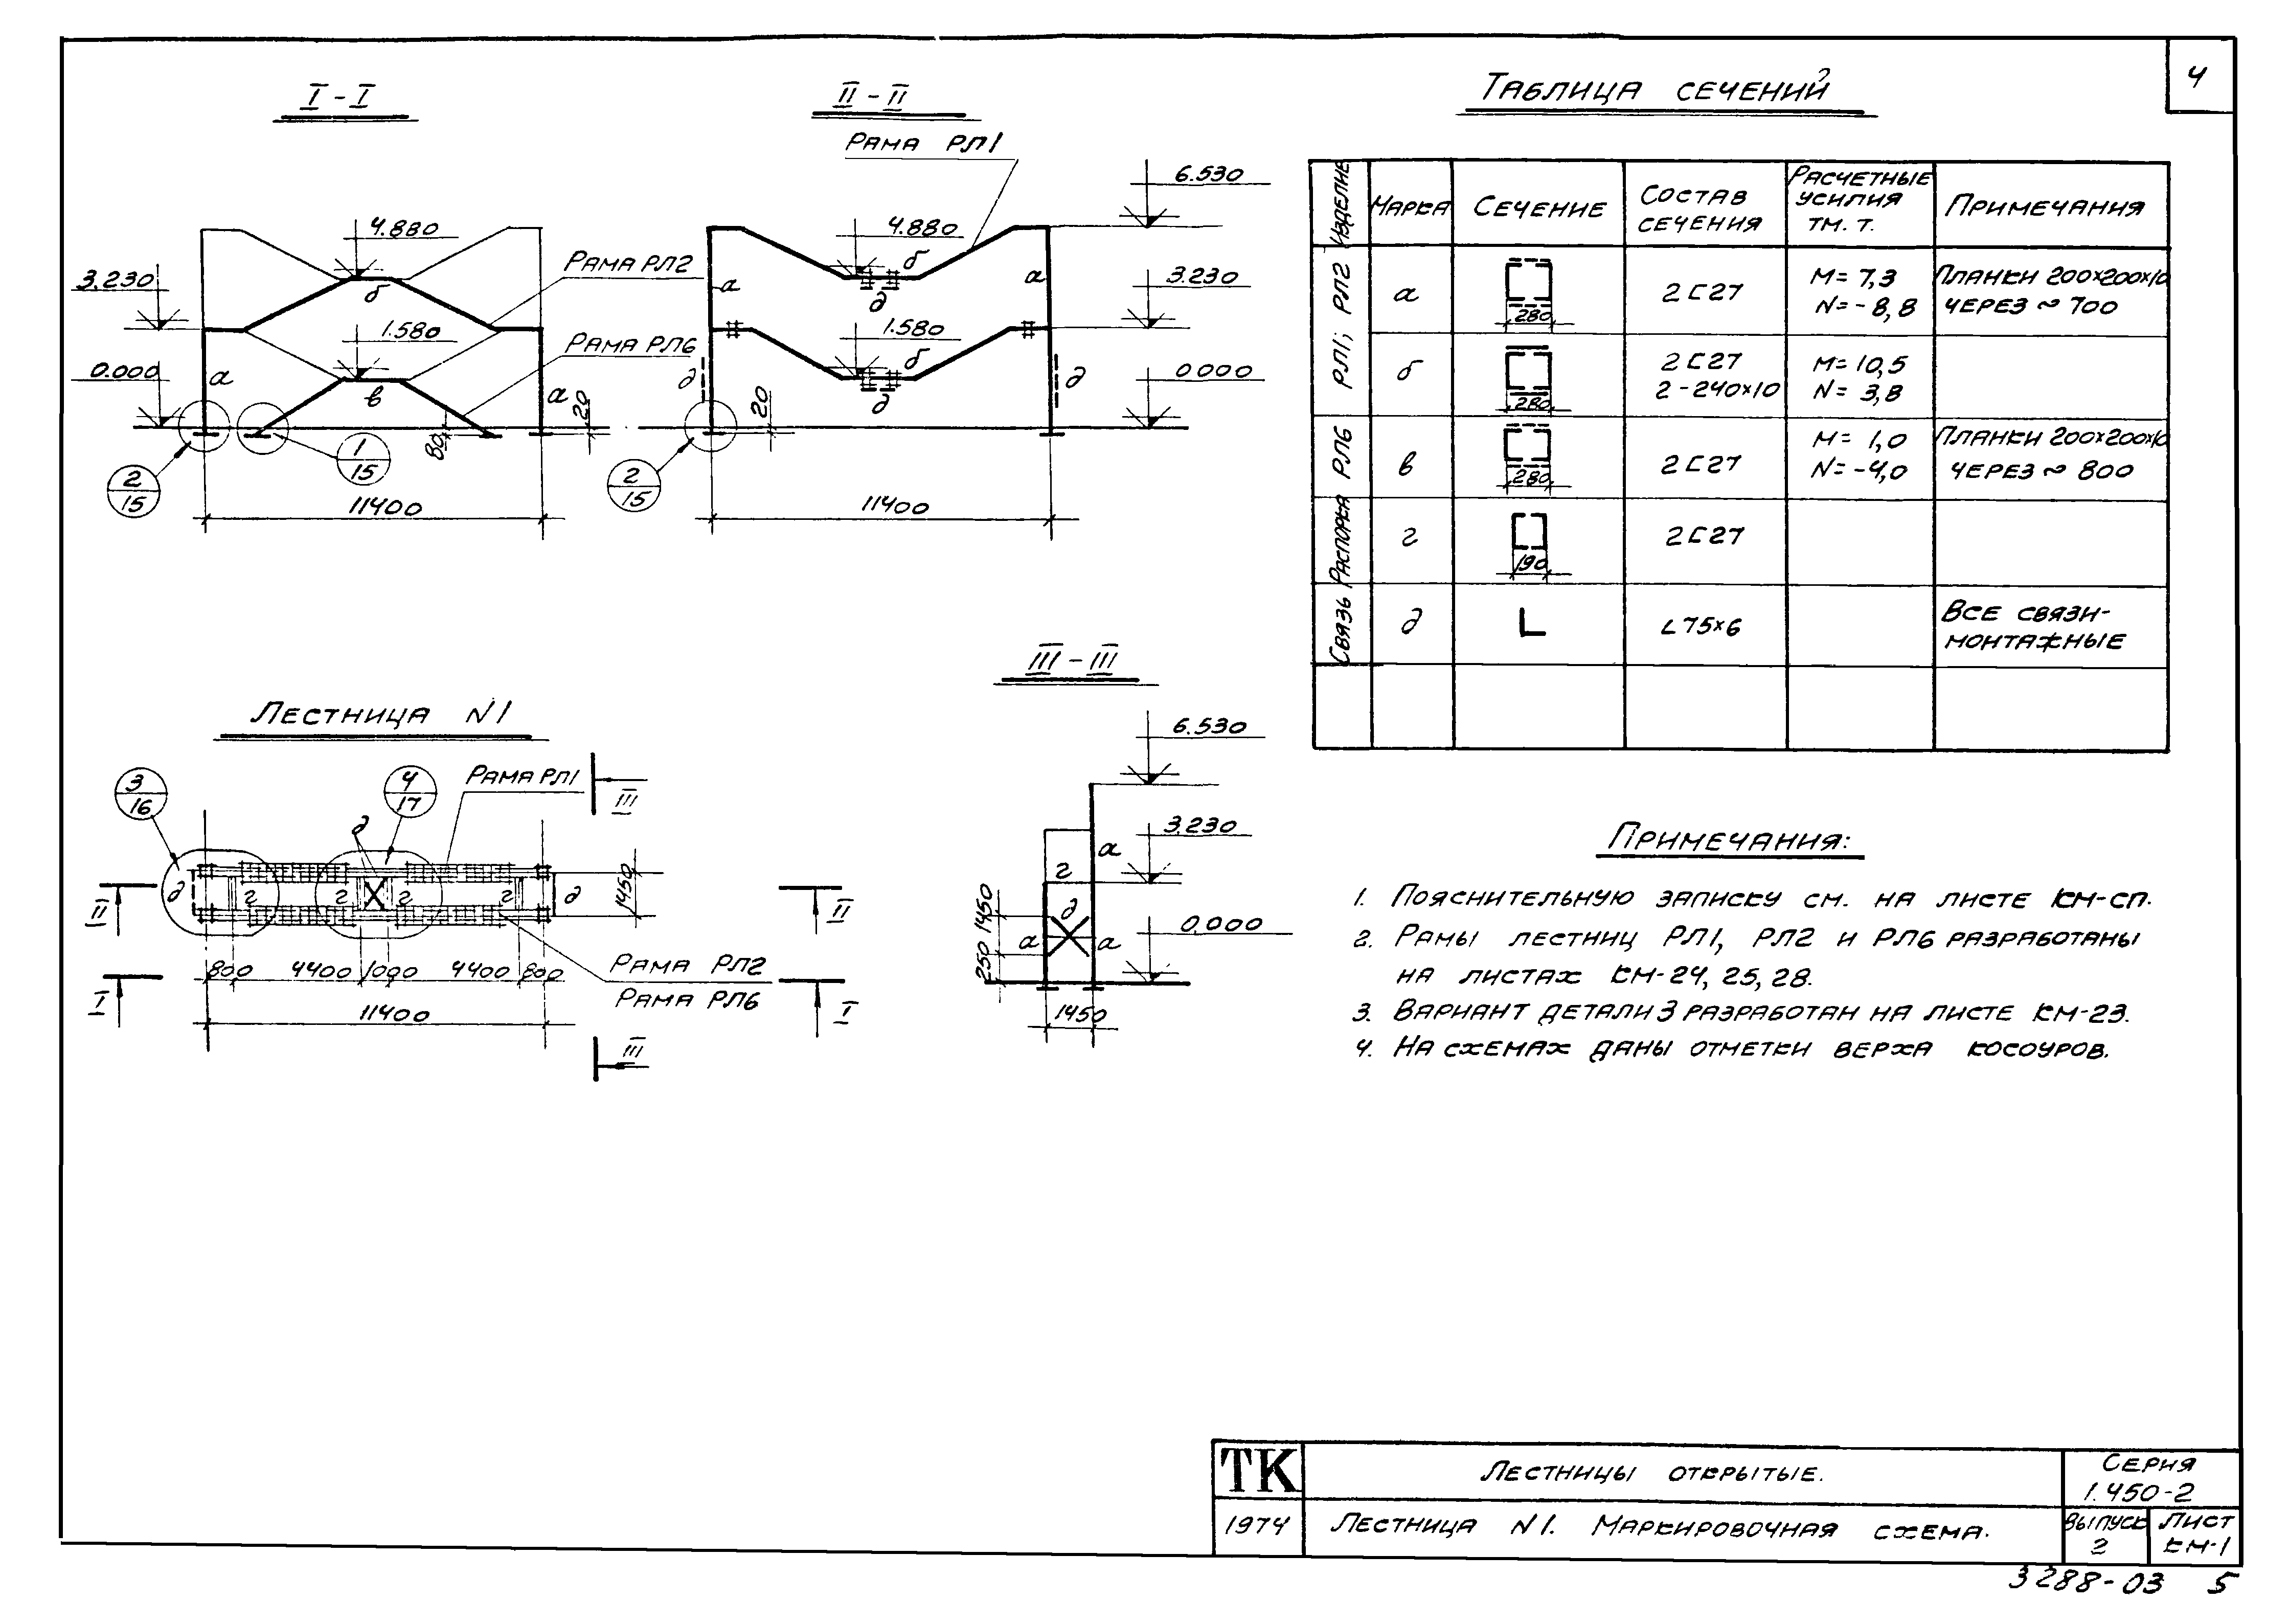 4
I - I
4.880
3.230
б
Рама РЛ2
1.580
Рама РЛ6
0.000
а
в
а
20
80
1
15
2
15
11400
II - II
Рама РЛ1
6.530
4.880
б
а
а
3.230
д
1.580
б
д
д
д
0.000
20
2
15
11400
Таблица сечений
Изделие
Марка
Сечение
Состав сечения
Расчетные усилия тм. т.
Примечания
РЛ1; РЛ2
а
280
2 С 27
М = 7,3
N = -8,8
Планки 200×200×10
через ~ 700
б
280
2 С 27
2 - 240×10
М = 10,5
N = 3,8
РЛ6
в
280
2 С 27
М = 1,0
N = -4,0
Планки 200×200×10
через ~ 800
Распорка
г
190
2 С 27
Связь
д
L 75×6
Все связи-
монтажные
Лестница N1
3
16
4
17
Рама РЛ1
III
д
д
г
г
г
г
д
1450
II
II
800 4400 1000 4400 800
Рама РЛ2
Рама РЛ6
I
I
11400
III
III - III
6.530
3.230
а
г
1450
д
0.000
а
а
250
1450
Примечания:
1. Пояснительную записку см. на листе КМ-СП.
2. Рамы лестниц РЛ1, РЛ2 и РЛ6 разработаны
на листах КМ-24, 25, 28.
3. Вариант детали 3 разработан на листе КМ-23.
4. На схемах даны отметки верха косоуров.
ТК
Лестницы открытые.
Серия
1.450-2
1974
Лестница N1. Маркировочная схема.
Выпуск
2
Лист
КМ-1
3288-03 5